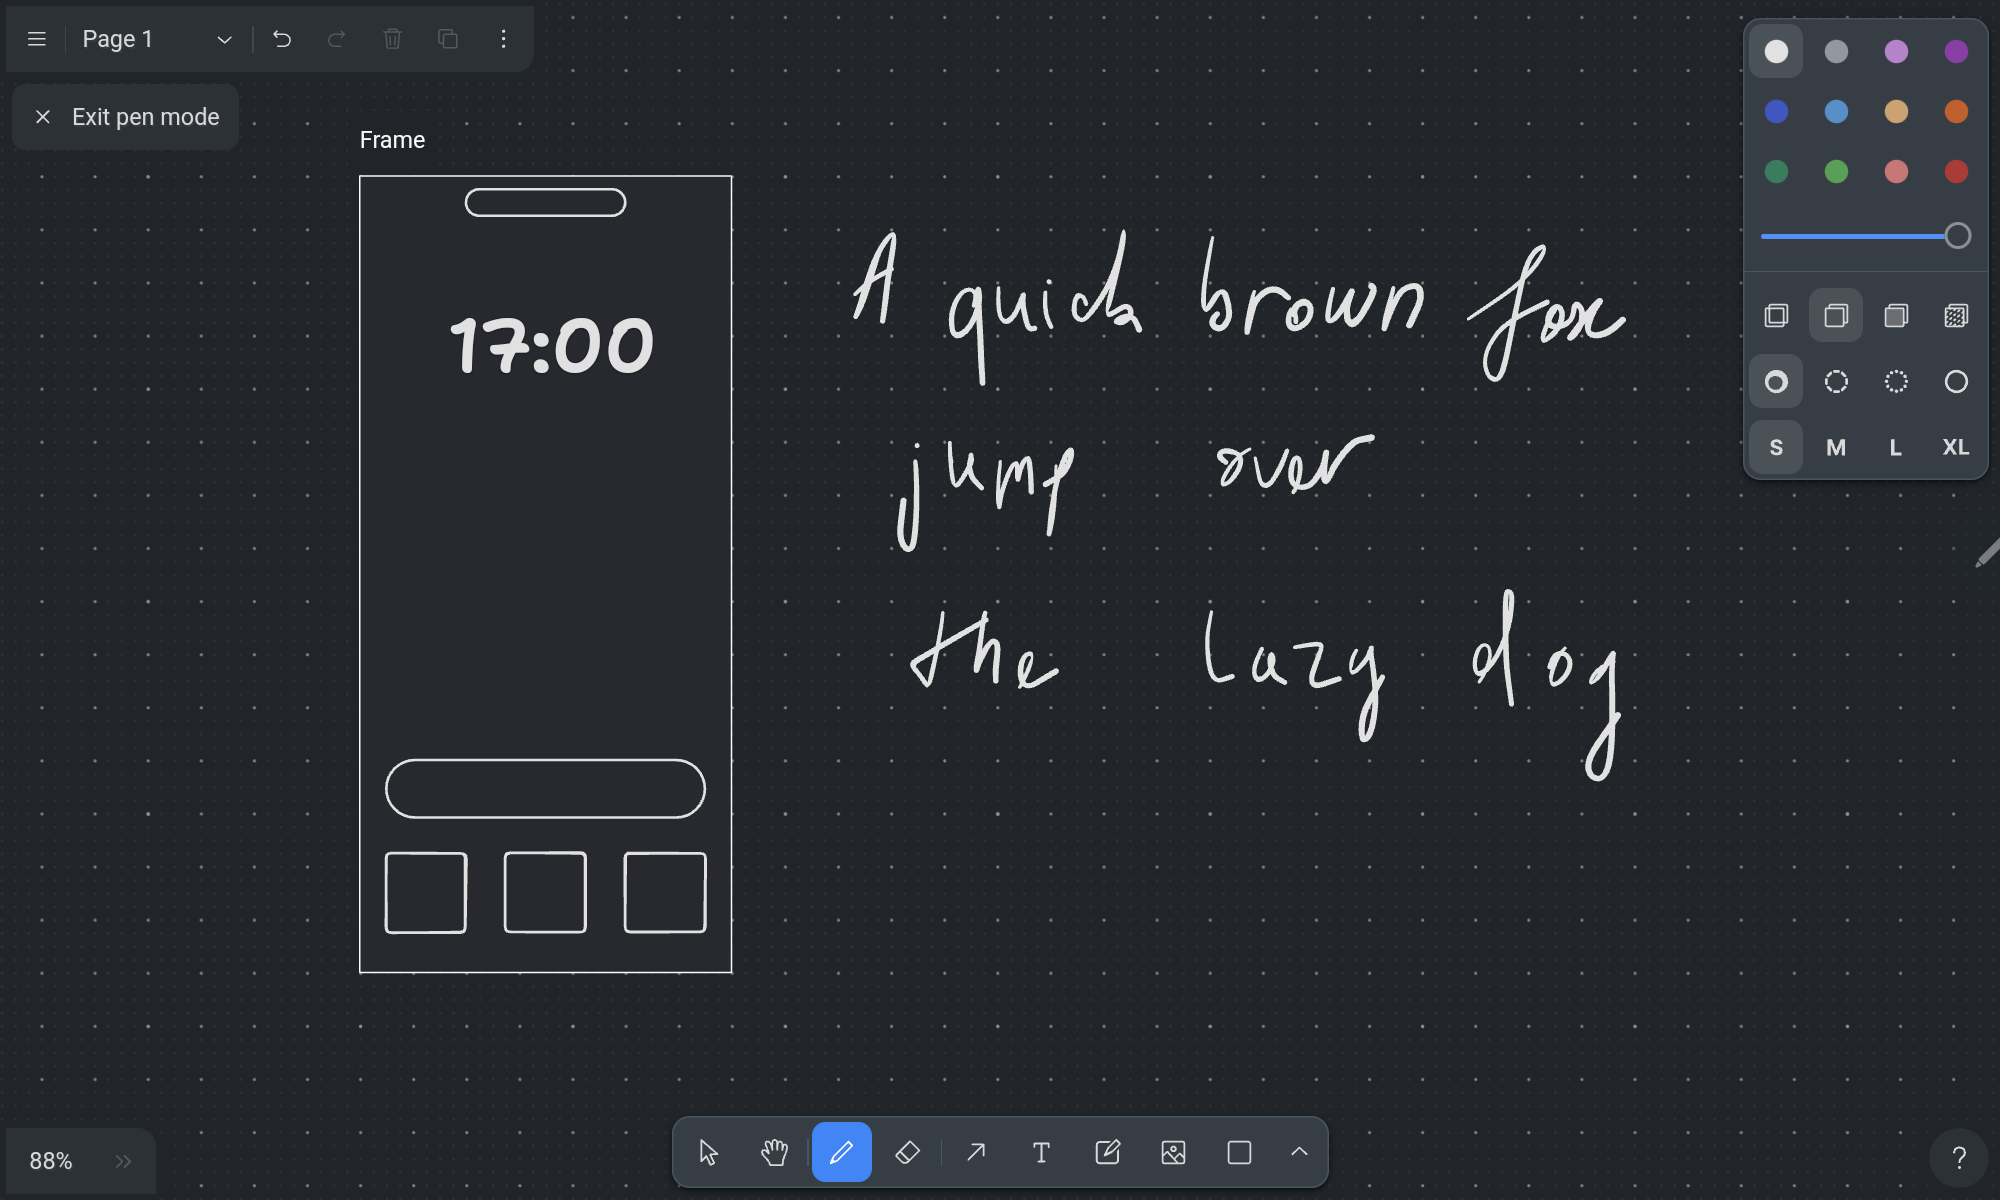 Page 1
Exit pen mode
Frame
17:00
A quick brown fox
jump over
the lazy dog
S M L XL
88%
?